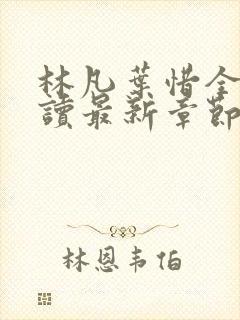 林凡葉惜全
讀最新章節
林恩韦伯